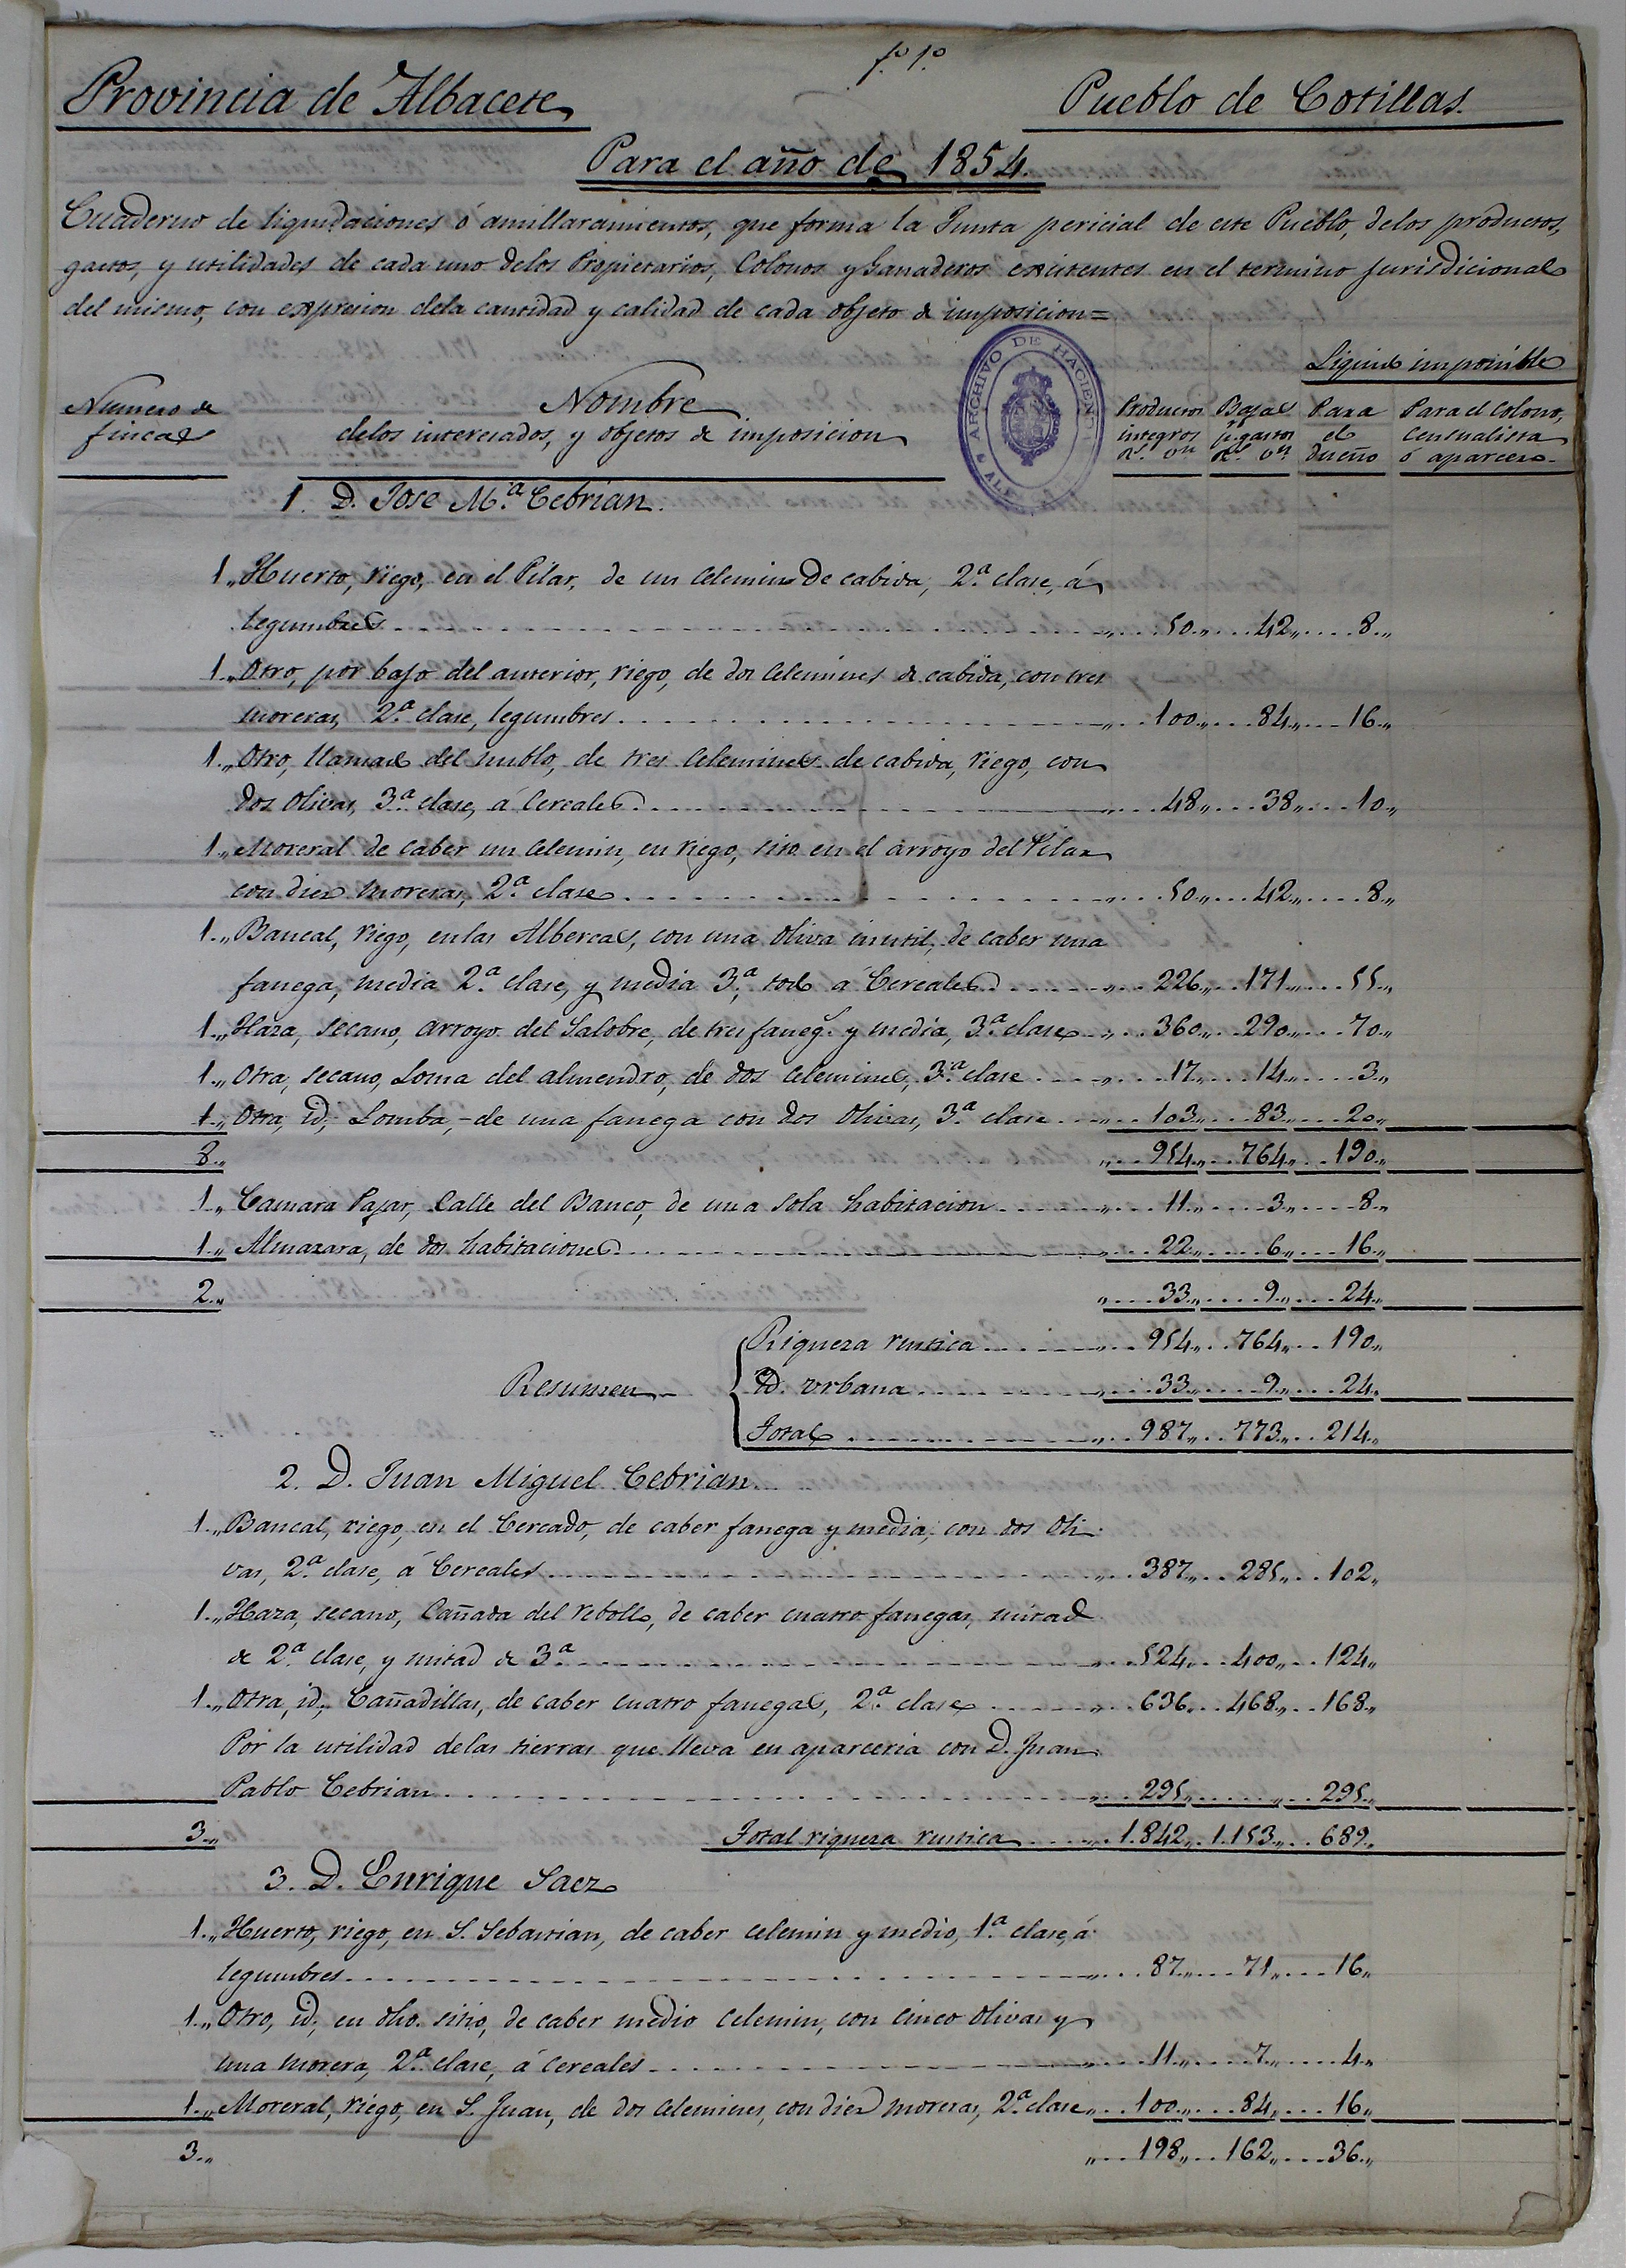 fº 1º
Provincia de Albacete
Pueblo de Cotillas.
Para el año de 1854.
Cuaderno de liquidaciones ó amillaramientos, que forma la Junta pericial de este Pueblo, delos productos,
gastos, y utilidades de cada uno delos Propietarios, Colonos y Ganaderos existentes en el termino jurisdicional
del mismo, con expresion dela cantidad y calidad de cada objeto de imposicion=
ARCHIVO DE HACIEND
Liquido imponible
Numero de fincas
Nombre
delos interesados, y objetos de imposicion
Productos integros Rs. vn
Bajas pr. gastos Rs. vn
Para el dueño
Para el Colono, Censualista ó aparcero.
1. D. Jose Mª. Cebrian.
1.. Huerto, riego, en el Pilar, de un Celemin de cabida, 2ª. clase, á
legumbres 50.. 42.. 8..
1.. Otro, por bajo del anterior, riego, de dos Celemines de cabida, con tres
moreras, 2ª. clase, legumbres 100.. 84.. 16..
1.. Otro, llamado del nublo, de tres Celemines de cabida, riego, con
dos Olivas, 3ª. clase, á Cereales 48.. 38.. 10..
1.. Moreral de caber un Celemin, en riego, sito en el arroyo del Pilar
con diez moreras, 2ª. clase 50.. 42.. 8..
1.. Bancal, riego, enlas Albercas, con una Oliva inutil, de caber una
fanega, media 2ª. clase, y media 3ª. todo á Cereales 226.. 171.. 55..
1.. Haza, secano, arroyo del Salobre, de tres faneg.s y media, 3ª. clase 360.. 290.. 70..
1.. Otra, secano, Loma del almendro, de dos Celemines, 3ª. clase 17.. 14.. 3..
1.. Otra, id, Lomba, - de una fanega con dos Olivas, 3ª. clase 103.. 83.. 20..
8.. 954.. 764.. 190..
1.. Camara Pajar, Calle del Banco, de una sola habitacion 11.. 3.. 8..
1.. Almazara, de dos habitaciones 22.. 6.. 16..
2.. 33.. 9.. 24..
Riqueza rustica 954.. 764.. 190..
Resumen - Id. urbana 33.. 9.. 24..
Total 987.. 773.. 214..
2. D. Juan Miguel Cebrian
1.. Bancal, riego, en el Cercado, de caber fanega y media, con dos Oli-
vas, 2ª. clase, á Cereales 387.. 285.. 102..
1.. Haza, secano, Cañada del rebollo, de caber cuatro fanegas, mitad
de 2ª. clase, y mitad de 3ª. 524.. 400.. 124..
1.. Otra, id, Cañadillas, de caber cuatro fanegas, 2ª. clase 636.. 468.. 168..
Por la utilidad delas tierras que lleva en aparceria con D. Juan
Pablo Cebrian 295.. .. 295..
3.. Total riqueza rustica 1.842.. 1.153.. 689..
3. D. Enrique Saez
1.. Huerto, riego, en S. Sebastian, de caber celemin y medio, 1ª. clase, á
legumbres 87.. 71.. 16..
1.. Otro, id, en dho. sitio, de caber medio Celemin, con cinco Olivas y
una morera, 2ª. clase, á Cereales 11.. 7.. 4..
1.. Moreral, riego, en S. Juan, de dos celemines, con diez moreras, 2ª. clase 100.. 84.. 16..
3.. 198.. 162.. 36..